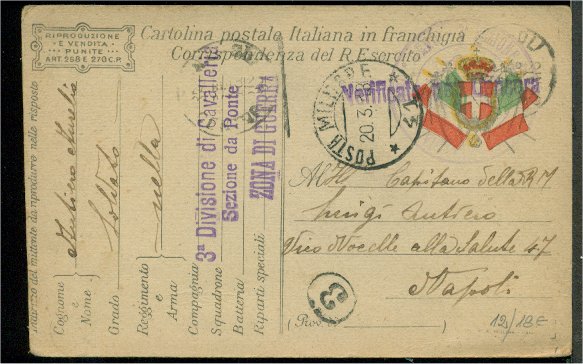 RIPRODUZIONE
E VENDITA
PUNITE
ART. 258 E 278 C.P.
Cartolina postale Italiana in franchigia
Corrispondenza del R. Esercito
Verificato per censura
POSTA MILITARE
20.3.
Indirizzo del mittente da riprodurre nelle risposte
Cognome e Nome
Autiero Aurelio
Grado
Soldato
Reggimento e Arma
nella
Compagnia
Squadrone
Batteria
Riparti speciali
3ª Divisione di Cavalleria
Sezione da Ponte
ZONA DI GUERRA
Al Capitano della R M
Luigi Autiero
Vico Nocelle alla Salute 47
Napoli
(Prov.
3
12/18E